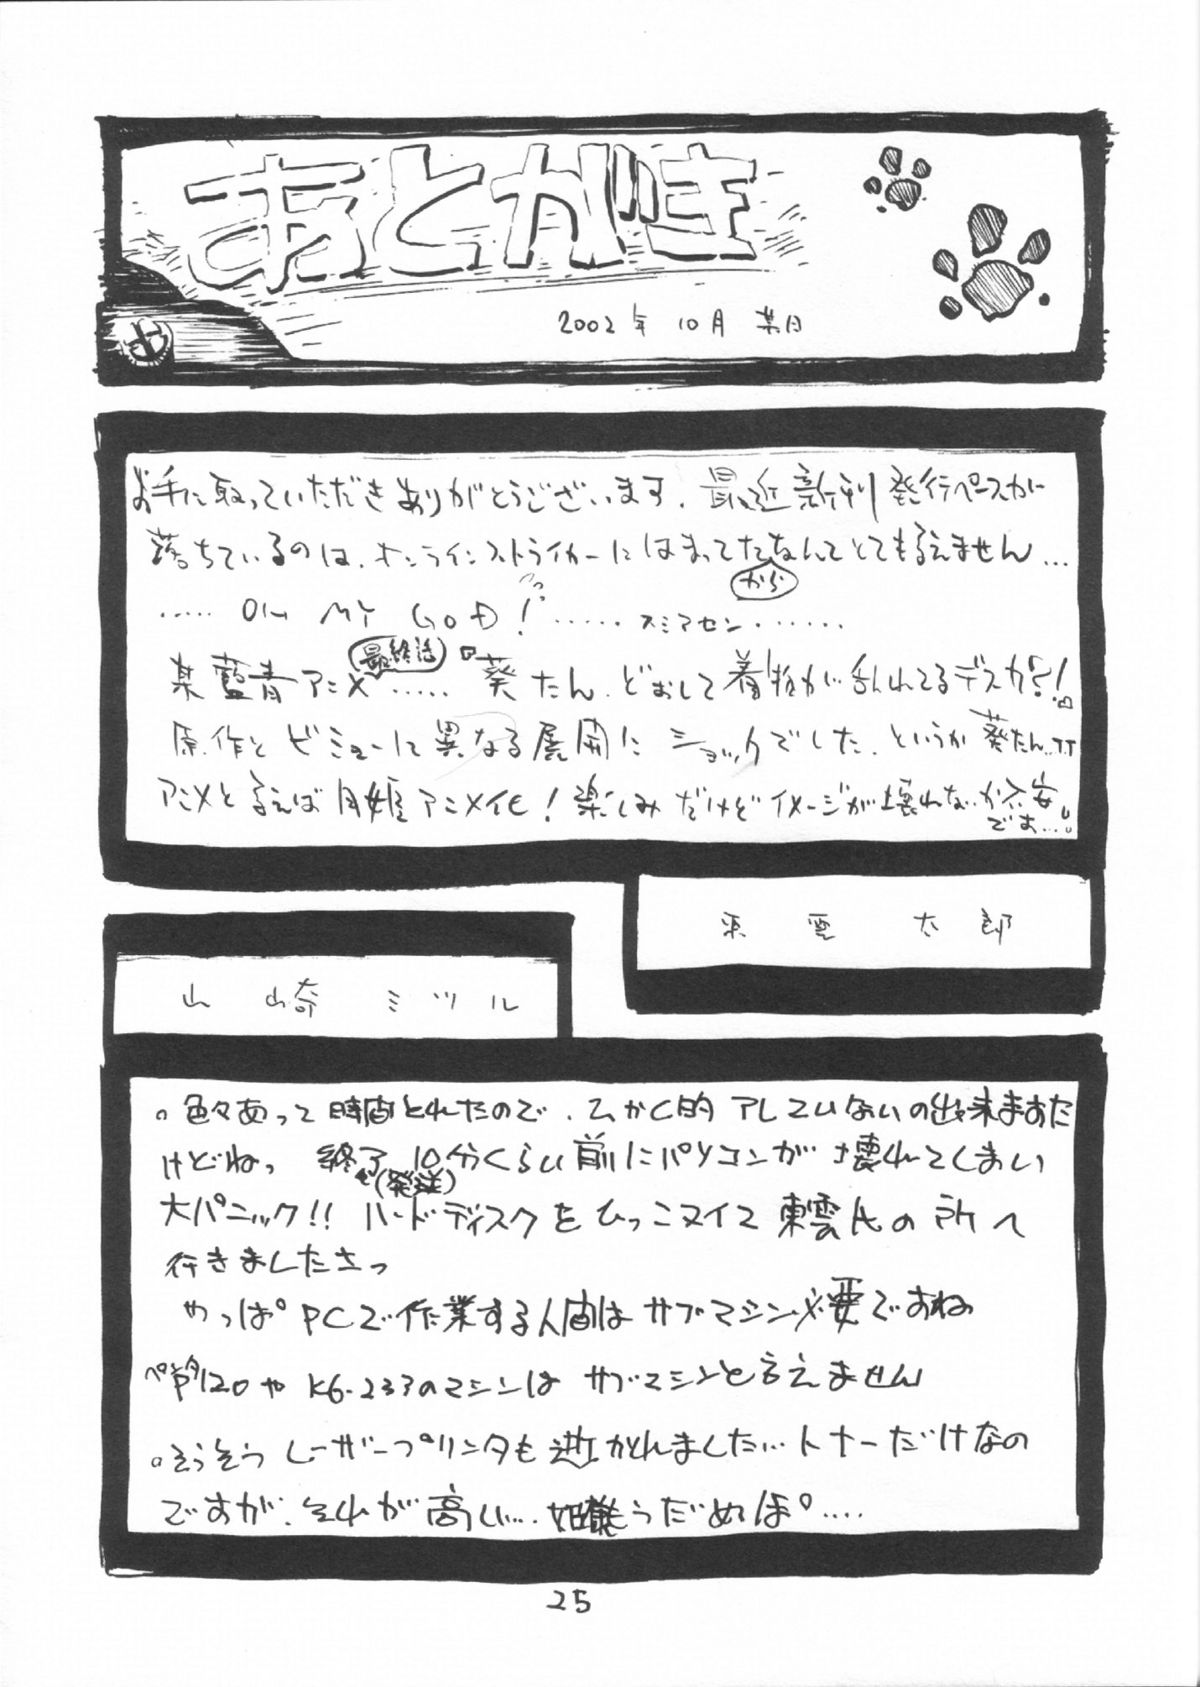 あとがき
2002年 10月 某日
お手に取っていただきありがとうございます、最近新刊発行ペースが
落ちているのは、オンラインストライカーにはまってたなんてとても言えません…
から
…… OH MY GOD! …… スミマセン ……
某藍青アニメ…… 葵たん、どおして着物が乱れてるデスカ!
最終話
原作とビミョーに異なる展開にショックでした、というか葵たん…
アニメと言えば月姫アニメ化!楽しみだけどイメージが壊れないか不安
でぉ…
東雲 太郎
山崎 ミツル
。色々あって時間とれたので、
けどねっ 終了10分くらい前にパソコンが壊れてしまい
(発送)
大パニック!! ハードディスクをひっこヌイて東雲氏の所へ
行きましたさっ
やっぱPCで作業する人間はサブマシン必要ですね
K6-233のマシンはサブマシンと言えません
。そうそうレーザープリンタも逝かれました… トナーだけなの
ですが、それが高い…
25